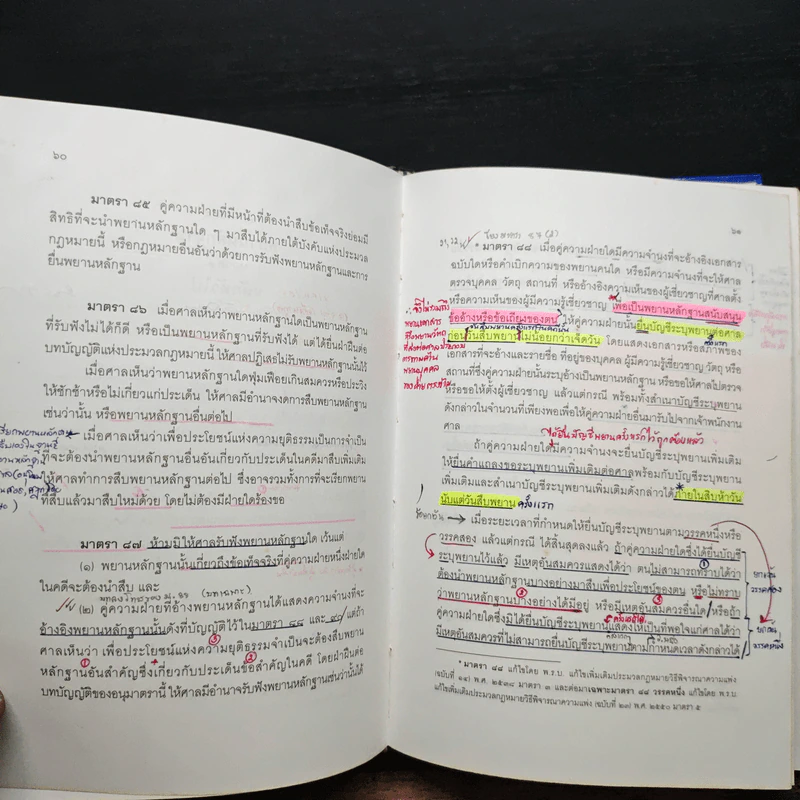 ๖๐
มาตรา ๘๕ คู่ความฝ่ายที่มีหน้าที่ต้องนำสืบข้อเท็จจริงย่อมมี
สิทธิที่จะนำพยานหลักฐานใด ๆ มาสืบได้ภายใต้บังคับแห่งประมวล
กฎหมายนี้ หรือกฎหมายอื่นอันว่าด้วยการรับฟังพยานหลักฐานและการ
ยื่นพยานหลักฐาน
มาตรา ๘๖ เมื่อศาลเห็นว่าพยานหลักฐานใดเป็นพยานหลักฐาน
ที่รับฟังไม่ได้ก็ดี หรือเป็นพยานหลักฐานที่รับฟังได้ แต่ได้ยื่นฝ่าฝืน
บทบัญญัติแห่งประมวลกฎหมายนี้ ให้ศาลปฏิเสธไม่รับพยานหลักฐานนั้นไว้
เมื่อศาลเห็นว่าพยานหลักฐานใดฟุ่มเฟือยเกินสมควรหรือประวิง
ให้ชักช้าหรือไม่เกี่ยวแก่ประเด็น ให้ศาลมีอำนาจงดการสืบพยานหลักฐาน
เช่นว่านั้น หรือพยานหลักฐานอื่นต่อไป
เมื่อศาลเห็นว่าเพื่อประโยชน์แห่งความยุติธรรมเป็นการจำเป็น
ที่จะต้องนำพยานหลักฐานอื่นอันเกี่ยวกับประเด็นในคดีมาสืบเพิ่มเติม
ให้ศาลทำการสืบพยานหลักฐานต่อไป ซึ่งอาจรวมทั้งการที่จะเรียกพยาน
ที่สืบแล้วมาสืบใหม่ด้วย โดยไม่ต้องมีฝ่ายใดร้องขอ
มาตรา ๘๗ ห้ามมิให้ศาลรับฟังพยานหลักฐานใด เว้นแต่
(๑) พยานหลักฐานนั้นเกี่ยวถึงข้อเท็จจริงที่คู่ความฝ่ายหนึ่งฝ่ายใด
ในคดีจะต้องนำสืบ และ
(๒) คู่ความฝ่ายที่อ้างพยานหลักฐานได้แสดงความจำนงที่จะ
อ้างอิงพยานหลักฐานนั้นดังที่บัญญัติไว้ในมาตรา ๘๘ และ ๙๐ แต่ถ้า
ศาลเห็นว่า เพื่อประโยชน์แห่งความยุติธรรมจำเป็นจะต้องสืบพยาน
หลักฐานอันสำคัญซึ่งเกี่ยวกับประเด็นข้อสำคัญในคดี โดยฝ่าฝืนต่อ
บทบัญญัติของอนุมาตรานี้ ให้ศาลมีอำนาจรับฟังพยานหลักฐานเช่นว่านั้นได้
๖๑
* มาตรา ๘๘ เมื่อคู่ความฝ่ายใดมีความจำนงที่จะอ้างอิงเอกสาร
ฉบับใดหรือคำเบิกความของพยานคนใด หรือมีความจำนงที่จะให้ศาล
ตรวจบุคคล วัตถุ สถานที่ หรืออ้างอิงความเห็นของผู้เชี่ยวชาญที่ศาลตั้ง
หรือความเห็นของผู้มีความรู้เชี่ยวชาญ เพื่อเป็นพยานหลักฐานสนับสนุน
ข้ออ้างหรือข้อเถียงของตน ให้คู่ความฝ่ายนั้นยื่นบัญชีระบุพยานต่อศาล
ก่อนวันสืบพยานไม่น้อยกว่าเจ็ดวัน โดยแสดงเอกสารหรือสภาพของ
เอกสารที่จะอ้างและรายชื่อ ที่อยู่ของบุคคล ผู้มีความรู้เชี่ยวชาญ วัตถุ หรือ
สถานที่ซึ่งคู่ความฝ่ายนั้นระบุอ้างเป็นพยานหลักฐาน หรือขอให้ศาลไปตรวจ
หรือขอให้ตั้งผู้เชี่ยวชาญ แล้วแต่กรณี พร้อมทั้งสำเนาบัญชีระบุพยาน
ดังกล่าวในจำนวนที่เพียงพอเพื่อให้คู่ความฝ่ายอื่นมารับไปจากเจ้าพนักงาน
ศาล
ได้ยื่นบัญชีพยานครั้งแรกไว้ถูกต้องแล้ว
ถ้าคู่ความฝ่ายใดมีความจำนงจะยื่นบัญชีระบุพยานเพิ่มเติม
ให้ยื่นคำแถลงขอระบุพยานเพิ่มเติมต่อศาลพร้อมกับบัญชีระบุพยาน
เพิ่มเติมและสำเนาบัญชีระบุพยานเพิ่มเติมดังกล่าวได้ ภายในสิบห้าวัน
นับแต่วันสืบพยาน ครั้งแรก
เมื่อระยะเวลาที่กำหนดให้ยื่นบัญชีระบุพยานตามวรรคหนึ่งหรือ
วรรคสอง แล้วแต่กรณี ได้สิ้นสุดลงแล้ว ถ้าคู่ความฝ่ายใดซึ่งได้ยื่นบัญชี
ระบุพยานไว้แล้ว มีเหตุอันสมควรแสดงได้ว่า ตนไม่สามารถทราบได้ว่า
ต้องนำพยานหลักฐานบางอย่างมาสืบเพื่อประโยชน์ของตน หรือไม่ทราบ
ว่าพยานหลักฐานบางอย่างได้มีอยู่ หรือมีเหตุอันสมควรอื่นใด หรือถ้า
คู่ความฝ่ายใดซึ่งมิได้ยื่นบัญชีระบุพยานแสดงให้เป็นที่พอใจแก่ศาลได้ว่า
มีเหตุอันสมควรที่ไม่สามารถยื่นบัญชีระบุพยานตามกำหนดเวลาดังกล่าวได้
* มาตรา ๘๘ แก้ไขโดย พ.ร.บ. แก้ไขเพิ่มเติมประมวลกฎหมายวิธีพิจารณาความแพ่ง
(ฉบับที่ ๑๔) พ.ศ. ๒๕๓๘ มาตรา ๓ และต่อมาเฉพาะมาตรา ๘๘ วรรคหนึ่ง แก้ไขโดย พ.ร.บ.
แก้ไขเพิ่มเติมประมวลกฎหมายวิธีพิจารณาความแพ่ง (ฉบับที่ ๒๓) พ.ศ. ๒๕๕๐ มาตรา ๕